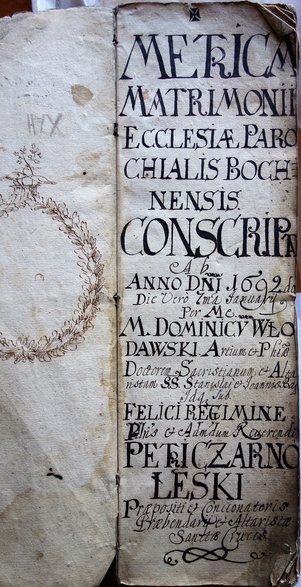 HZX
METRICA
MATRIMONII
ECCLESIÆ PARO
CHIALIS BOCH=
NENSIS
CONSCRIPTA
Ab
ANNO DNI 1692do
Die Vero 2ma Januarij
Per Me
M. DOMINICV WŁO
DAWSKI Artium & Philæ
Doctorem Sacristianum & Alta
ristam SS Stanislaj & Joannis
Sub
FELICI REGIMINE
Plris & Admdum Reverendi
PETRI CZARNO
LESKI
Præpositi & Concionatoris
Præbendarij & Altaristæ
Sanctæ Crucis